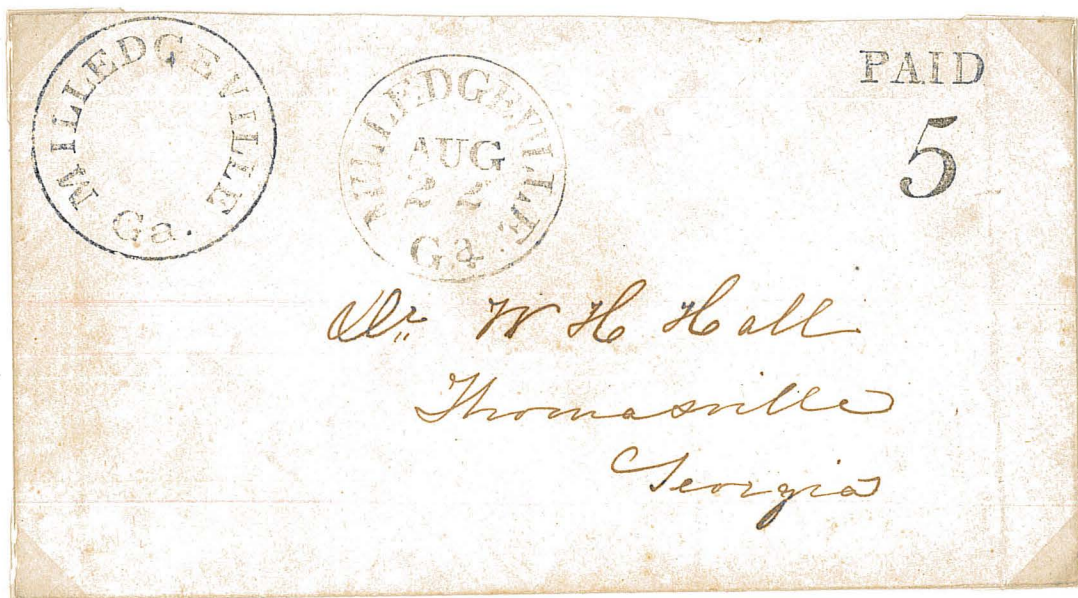 MILLEDGEVILLE
Ga.
MILLEDGEVILLE
AUG
22
Ga
PAID
5
Dr. W H Hall
Thomasville
Georgia